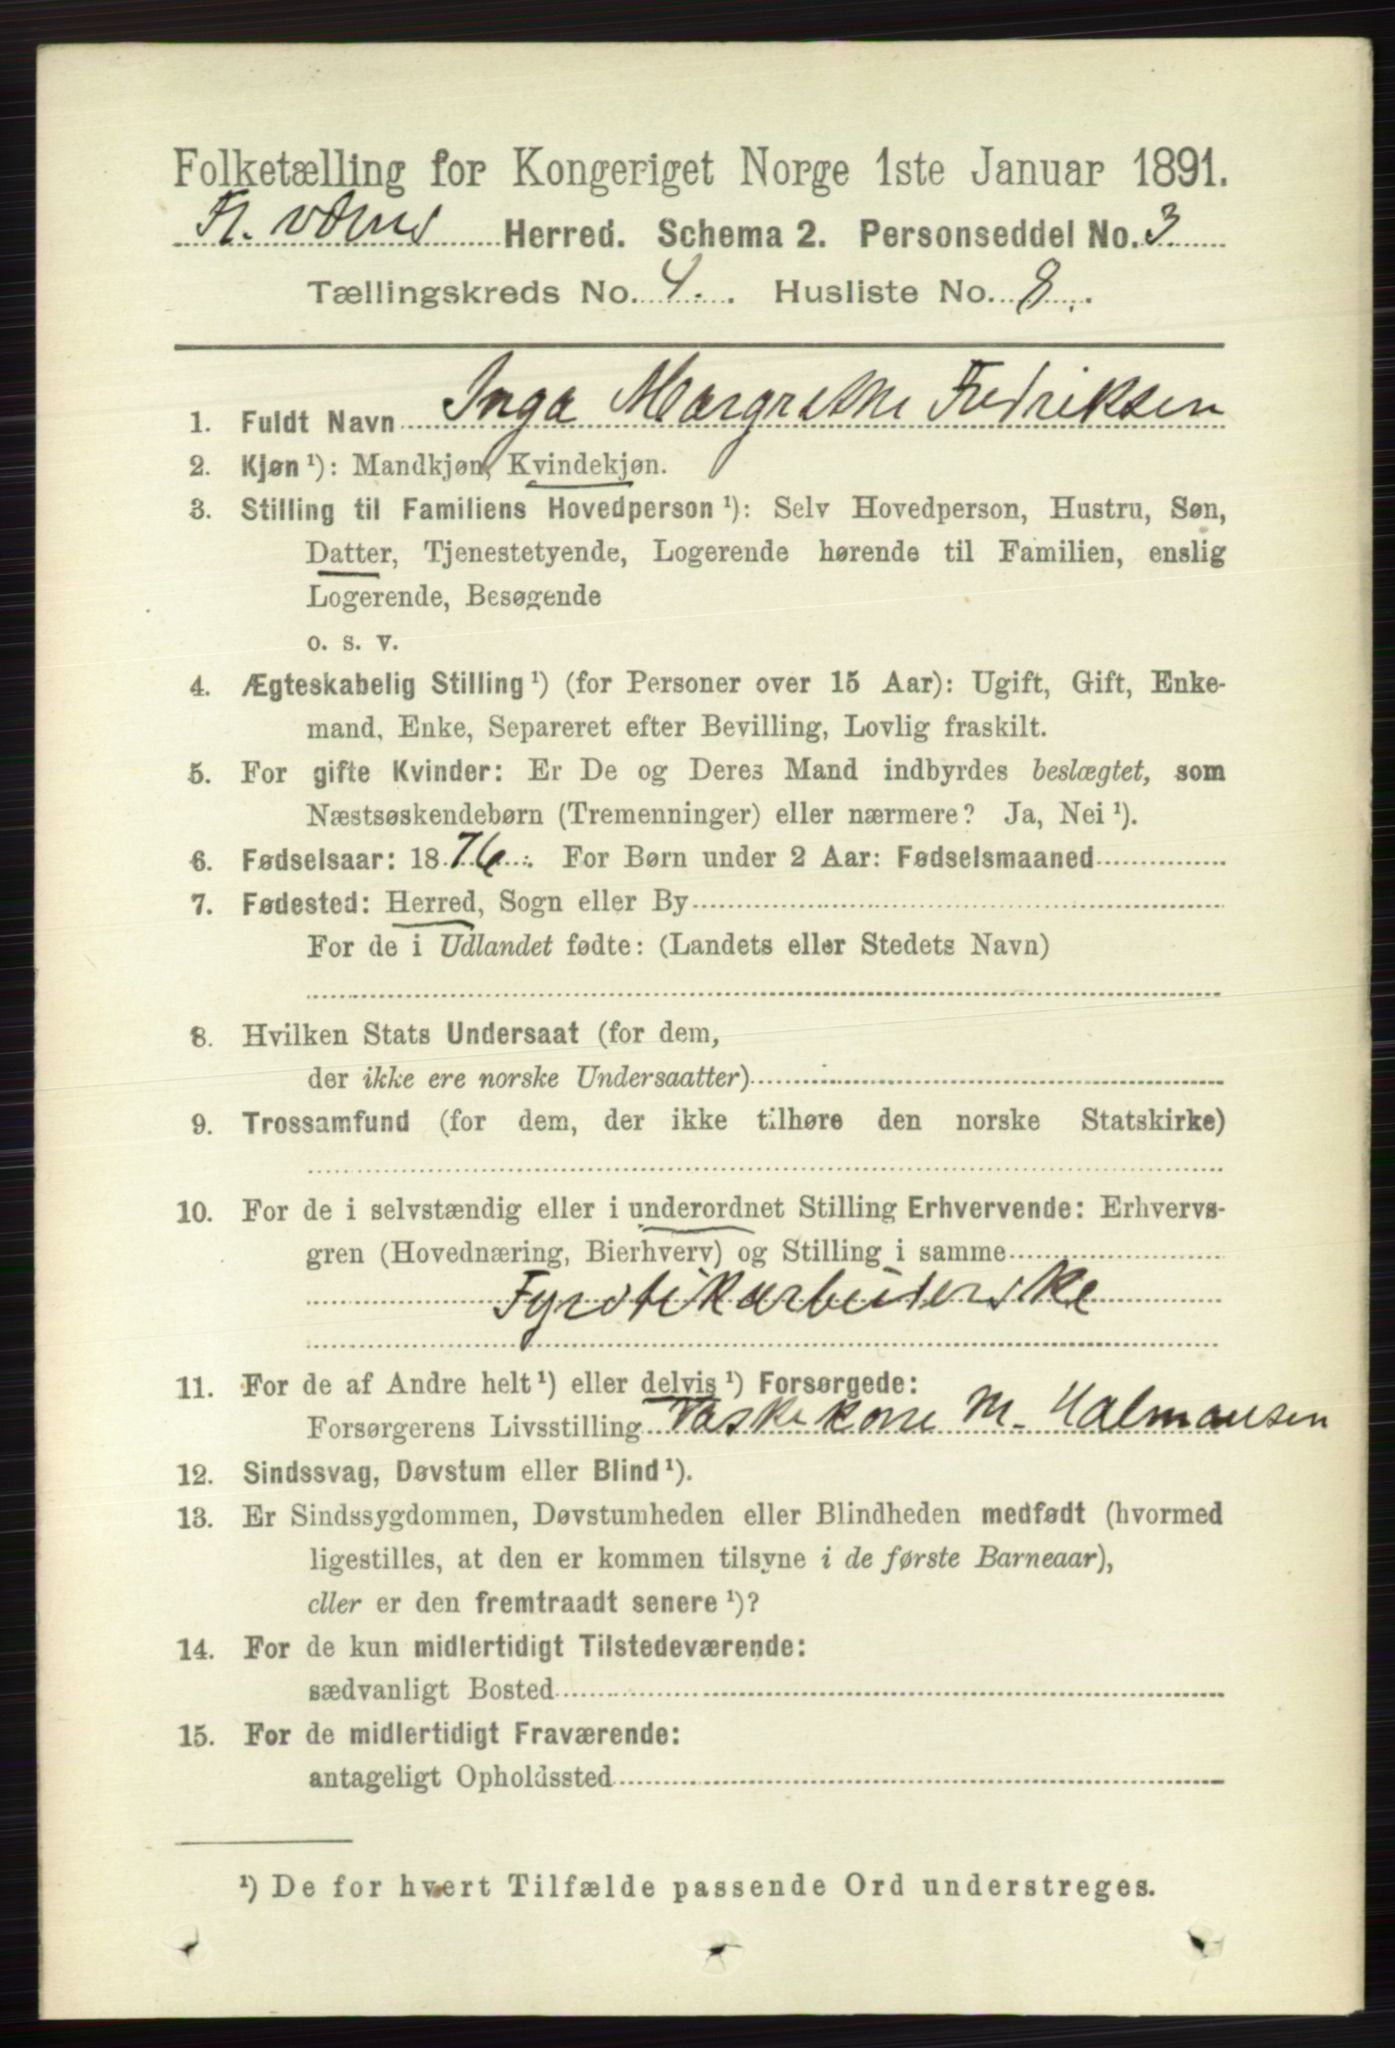 Folketælling for Kongeriget Norge 1ste Januar 1891.
Herred. Schema 2. Personseddel No. 3
Tællingskreds No. 4. Husliste No. 8.
1. Fuldt Navn Inga Margrethe Fredriksen
2. Kjøn ¹): Mandkjøn, Kvindekjøn.
3. Stilling til Familiens Hovedperson ¹): Selv Hovedperson, Hustru, Søn,
Datter, Tjenestetyende, Logerende hørende til Familien, enslig
Logerende, Besøgende
o. s. v.
4. Ægteskabelig Stilling ¹) (for Personer over 15 Aar): Ugift, Gift, Enke-
mand, Enke, Separeret efter Bevilling, Lovlig fraskilt.
5. For gifte Kvinder: Er De og Deres Mand indbyrdes beslægtet, som
Næstsøskendebørn (Tremenninger) eller nærmere? Ja, Nei ¹).
6. Fødselsaar: 1876. For Børn under 2 Aar: Fødselsmaaned
7. Fødested: Herred, Sogn eller By
For de i Udlandet fødte: (Landets eller Stedets Navn)
8. Hvilken Stats Undersaat (for dem,
der ikke ere norske Undersaatter)
9. Trossamfund (for dem, der ikke tilhøre den norske Statskirke)
10. For de i selvstændig eller i underordnet Stilling Erhvervende: Erhvervs-
gren (Hovednæring, Bierhverv) og Stilling i samme
Fyrstikarbeiderske
11. For de af Andre helt ¹) eller delvis ¹) Forsørgede:
Forsørgerens Livsstilling Vaskekone M. Halmansen
12. Sindssvag, Døvstum eller Blind ¹).
13. Er Sindssygdommen, Døvstumheden eller Blindheden medfødt (hvormed
ligestilles, at den er kommen tilsyne i de første Barneaar),
eller er den fremtraadt senere ¹)?
14. For de kun midlertidigt Tilstedeværende:
sædvanligt Bosted
15. For de midlertidigt Fraværende:
antageligt Opholdssted
¹) De for hvert Tilfælde passende Ord understreges.